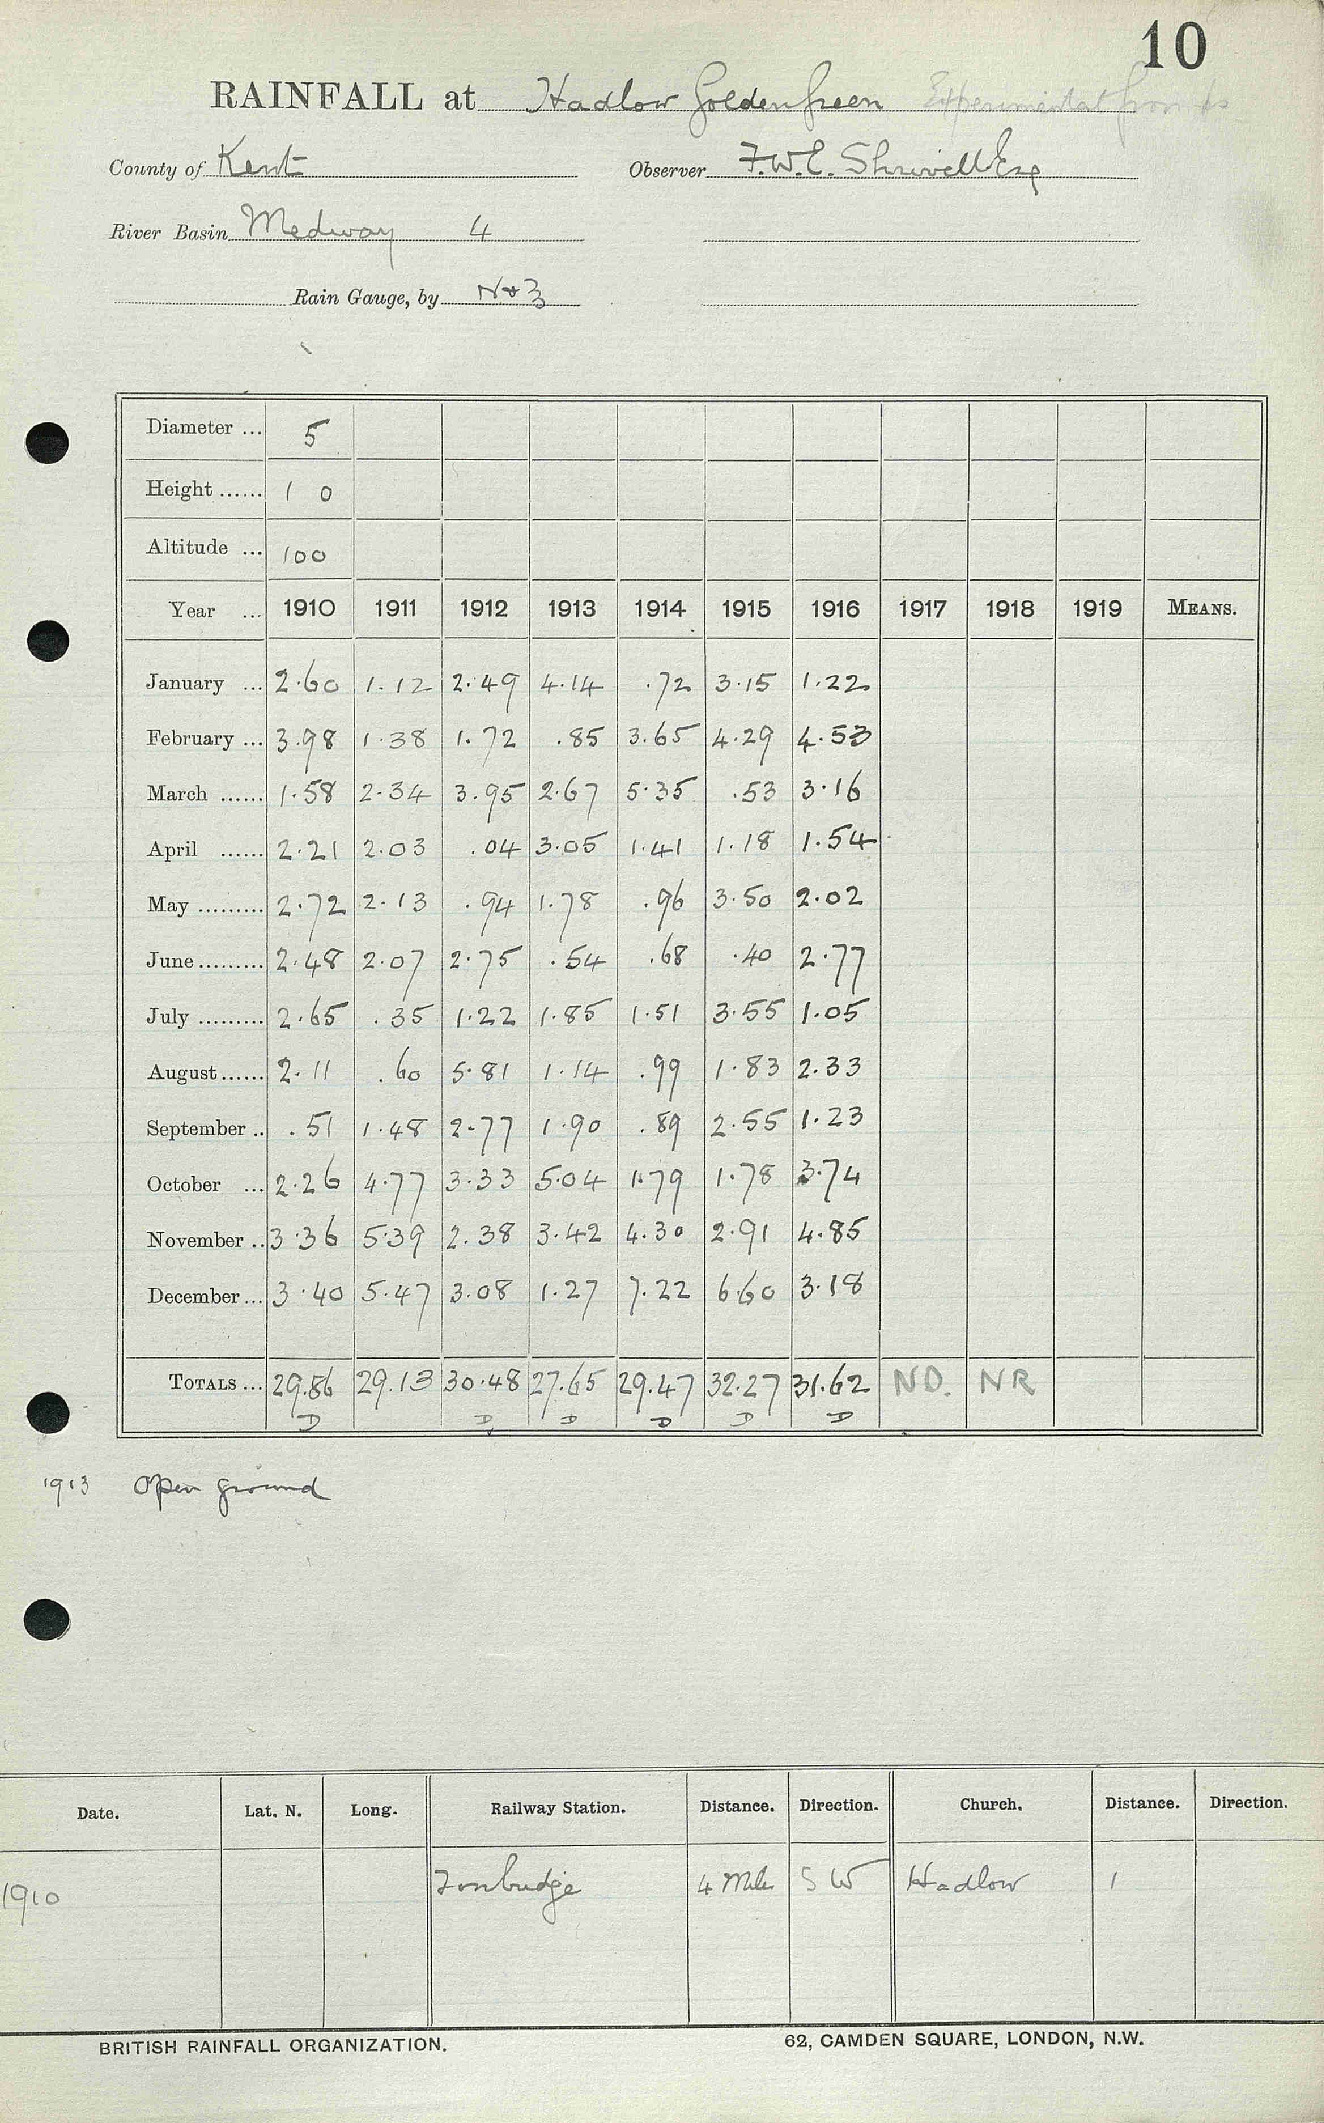 10
RAINFALL at Hadlow Golden Green Experimental Grounds
County of Kent Observer F.W.E. Shrivell Esq
River Basin Medway 4
Rain Gauge, by N & Z
Diameter ... 5
Height ...... 1 0
Altitude ... 100
Year ... 1910 1911 1912 1913 1914 1915 1916 1917 1918 1919 MEANS.
January ... 2.60 1.12 2.49 4.14 .72 3.15 1.22
February ... 3.98 1.38 1.72 .85 3.65 4.29 4.53
March ...... 1.58 2.34 3.95 2.67 5.35 .53 3.16
April ...... 2.21 2.03 .04 3.05 1.41 1.18 1.54
May ......... 2.72 2.13 .94 1.78 .96 3.50 2.02
June ......... 2.48 2.07 2.75 .54 .68 .40 2.77
July ......... 2.65 .35 1.22 1.85 1.51 3.55 1.05
August ...... 2.11 .60 5.81 1.14 .99 1.83 2.33
September .. .51 1.48 2.77 1.90 .89 2.55 1.23
October ... 2.26 4.77 3.33 5.04 1.79 1.78 3.74
November .. 3.36 5.39 2.38 3.42 4.30 2.91 4.85
December ... 3.40 5.47 3.08 1.27 7.22 6.60 3.18
TOTALS ... 29.86 29.13 30.48 27.65 29.47 32.27 31.62 ND. NR
D D D D D D
1913 Open ground
Date. Lat. N. Long. Railway Station. Distance. Direction. Church. Distance. Direction.
1910 Tonbridge 4 Mile SW Hadlow 1
BRITISH RAINFALL ORGANIZATION. 62, CAMDEN SQUARE, LONDON, N.W.